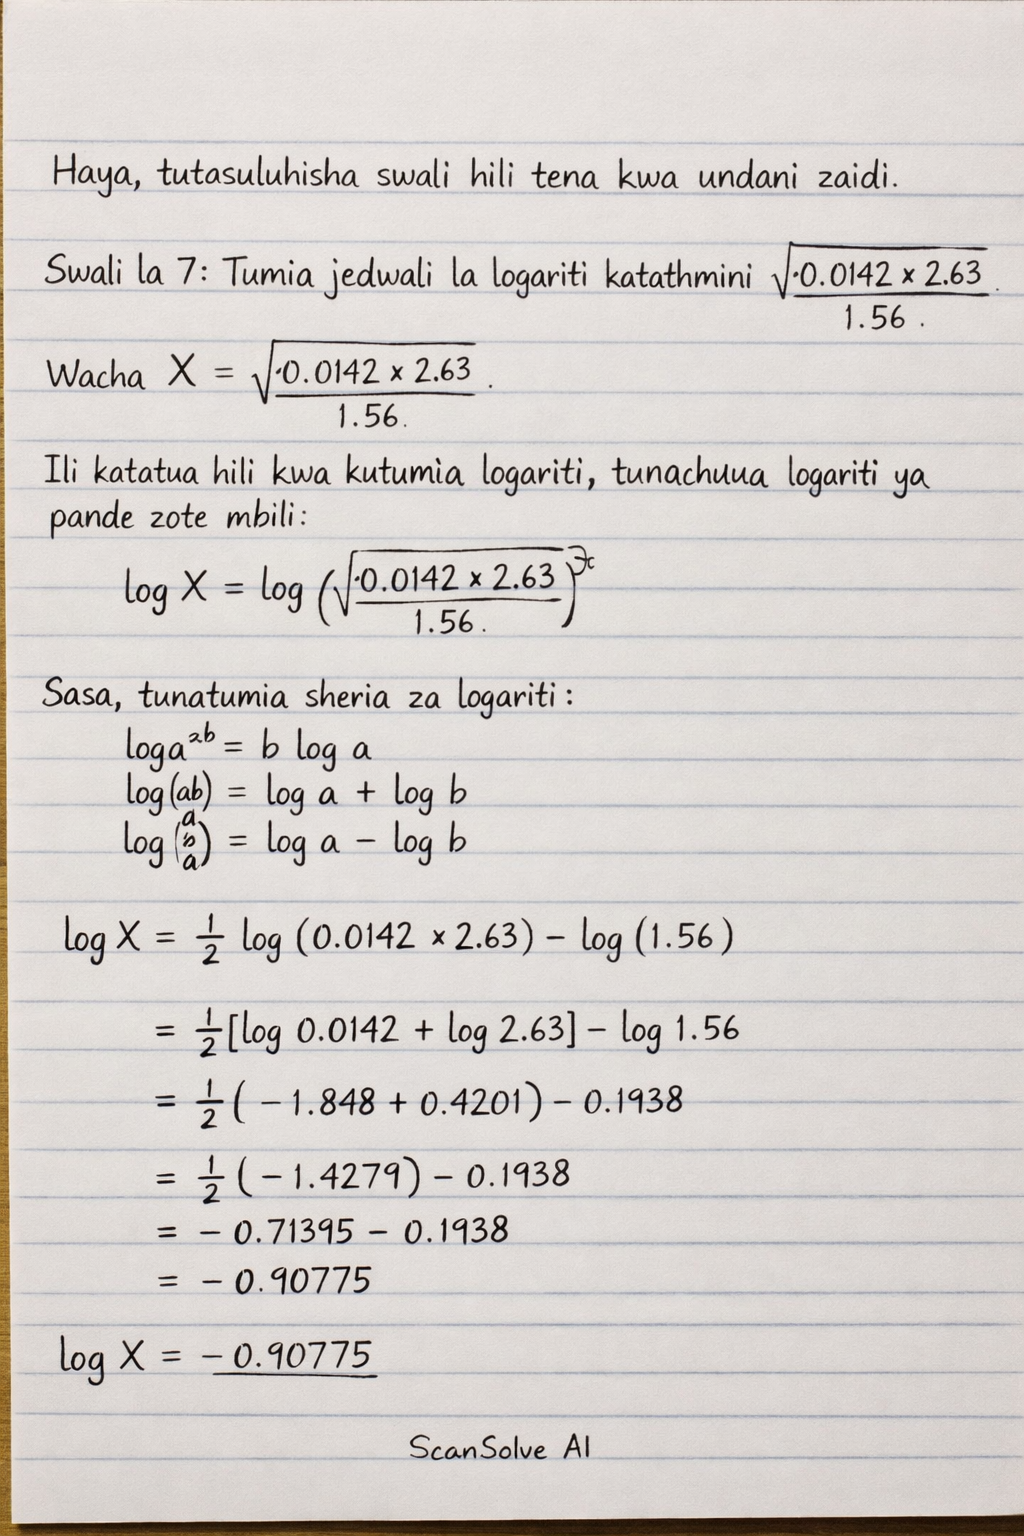 Haya, tutasuluhisha swali hili tena kwa undani zaidi.
Swali la 7: Tumia jedwali la logariti katathmini √·0.0142 × 2.63 / 1.56 .
Wacha X = √·0.0142 × 2.63 / 1.56. .
Ili katatua hili kwa kutumia logariti, tunachuua logariti ya
pande zote mbili:
log X = log (√·0.0142 × 2.63 / 1.56.)
Sasa, tunatumia sheria za logariti:
log a²ᵇ = b log a
log (ab) = log a + log b
log (a b a) = log a − log b
log X = 1/2 log (0.0142 × 2.63) − log (1.56)
= 1/2 [log 0.0142 + log 2.63] − log 1.56
= 1/2 (−1.848 + 0.4201) − 0.1938
= 1/2 (−1.4279) − 0.1938
= −0.71395 − 0.1938
= −0.90775
log X = −0.90775
ScanSolve AI